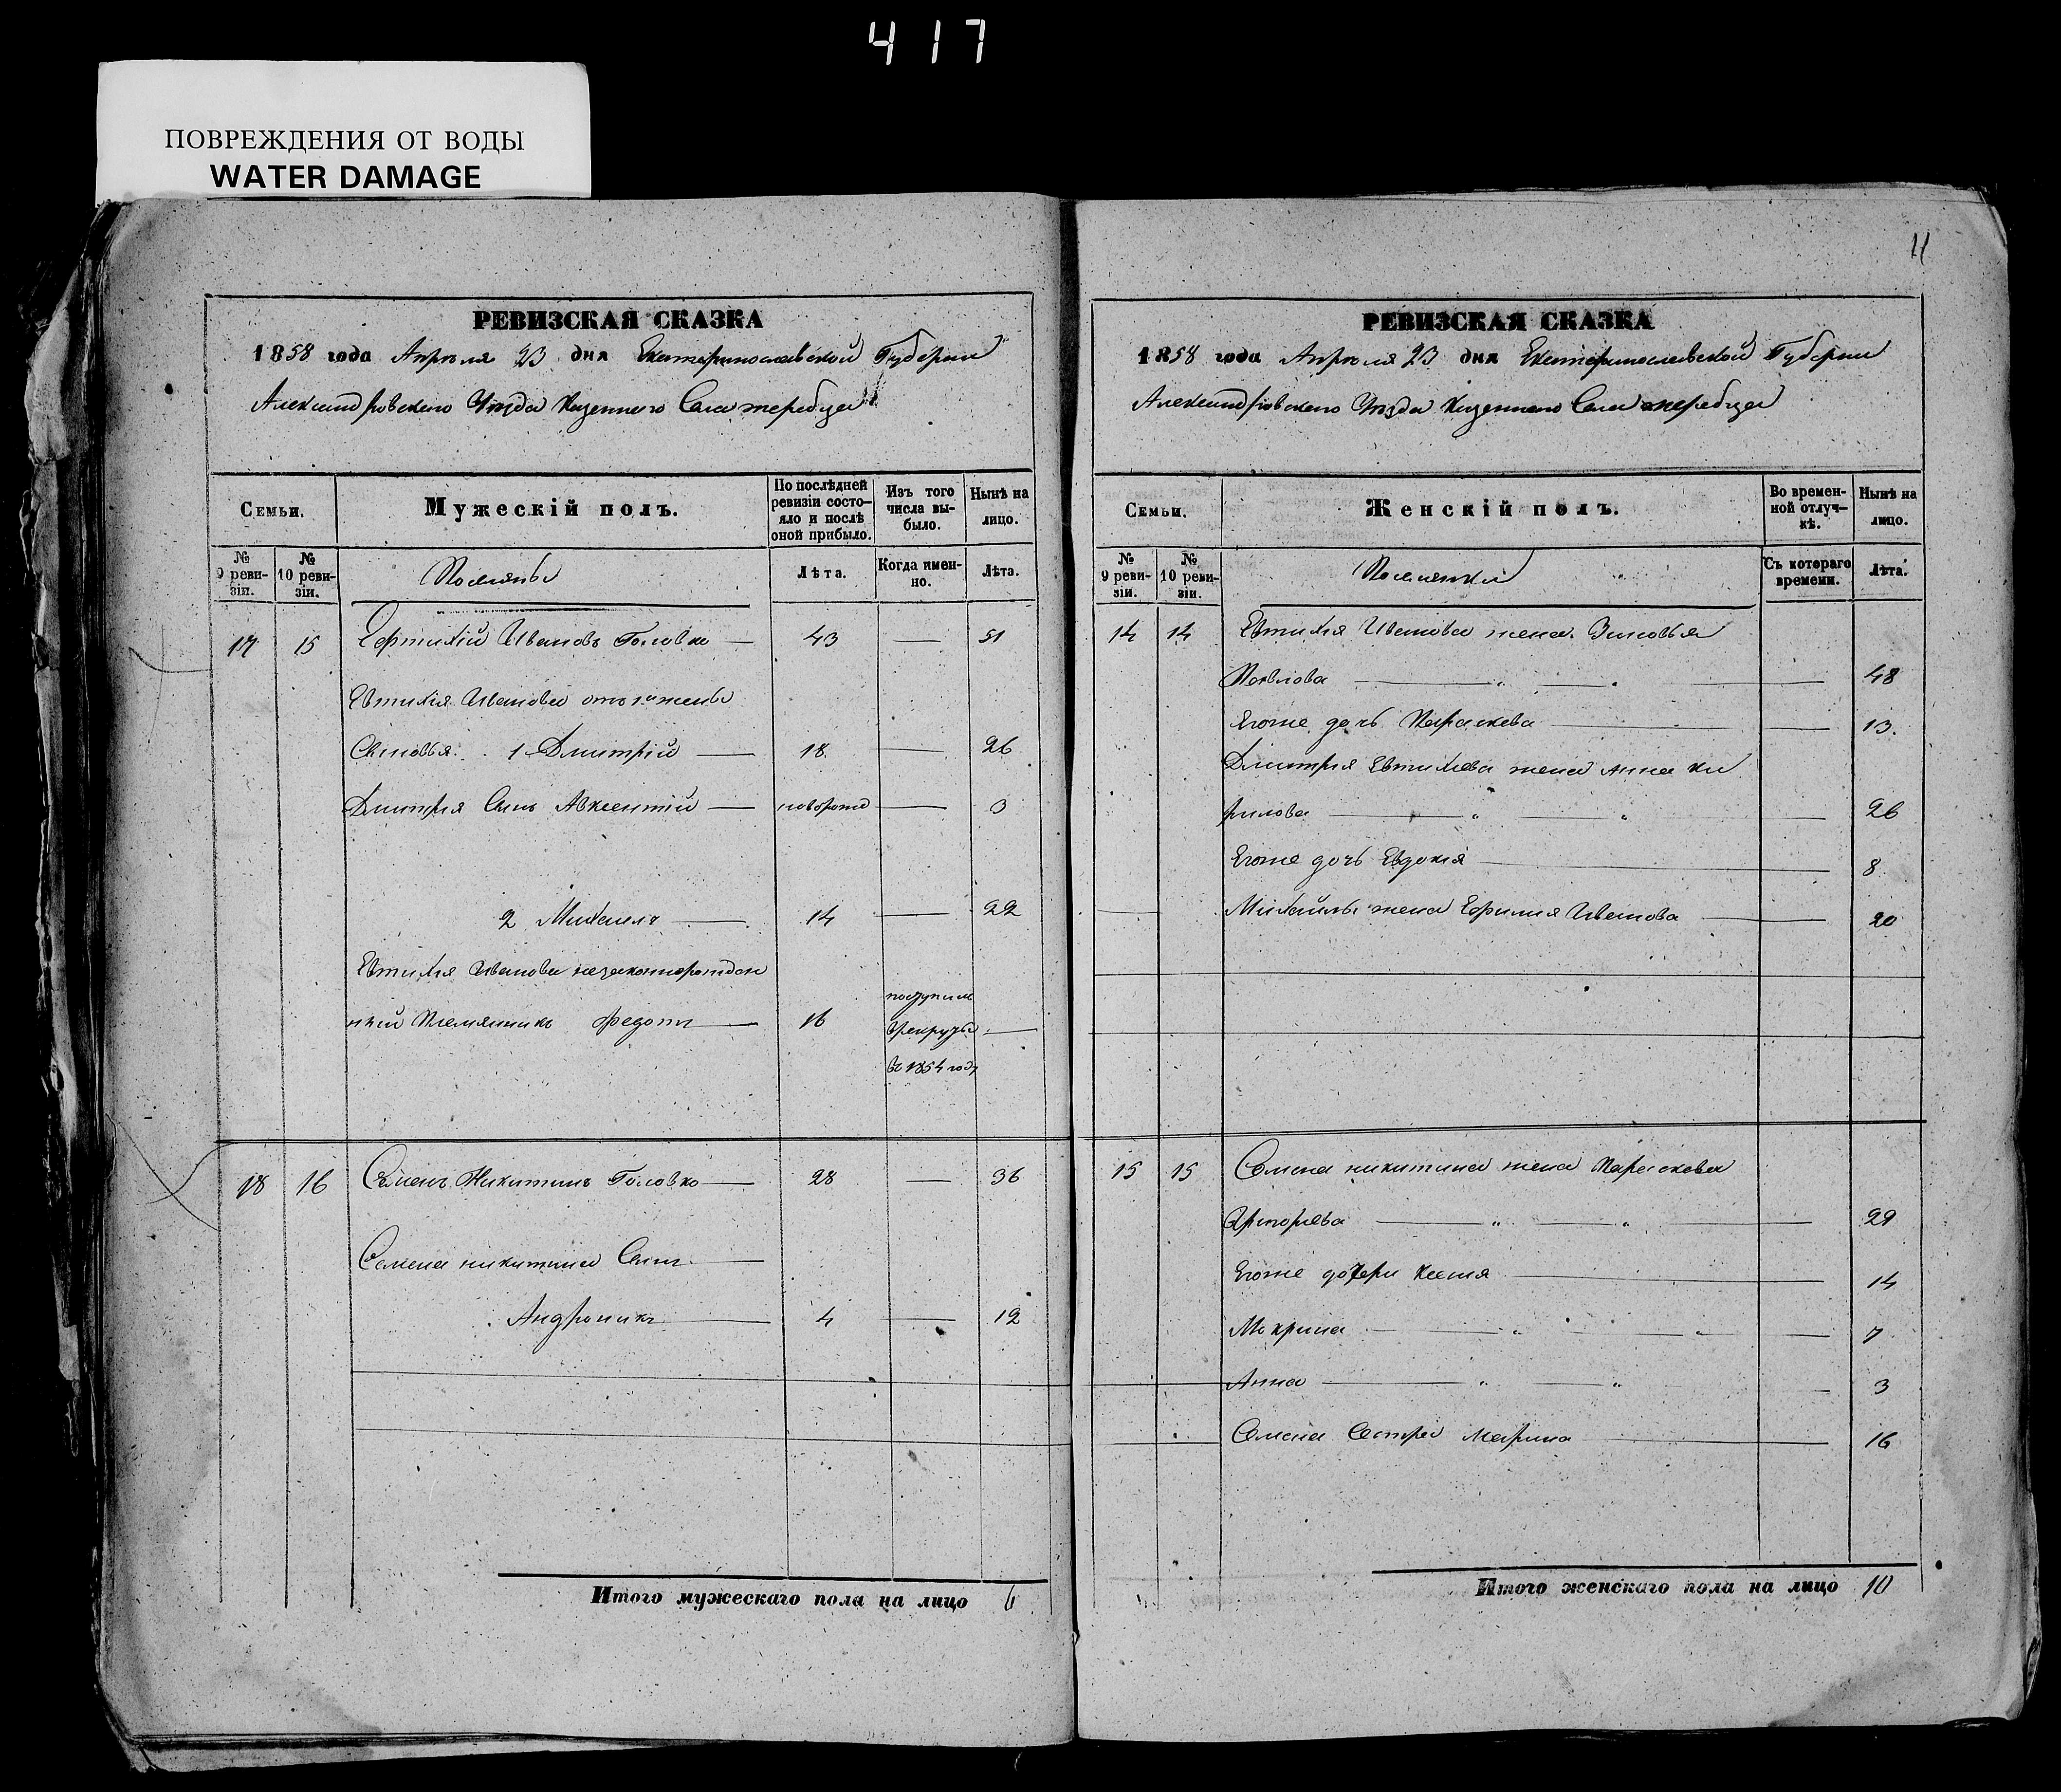 417
ПОВРЕЖДЕНИЯ ОТ ВОДЫ
WATER DAMAGE
РЕВИЗСКАЯ СКАЗКА
1858 года Апреля 23 дня Екатеринославской Губернии
Александровского Уезда Казенного Села Жеребца
Семьи.
Мужескій полъ.
По послѣдней ревизіи состо-
яло и послѣ
оной прибыло.
Изъ того
числа вы-
было.
Нынѣ на
лицо.
№
9 реви-
зіи.
№
10 реви-
зіи.
Поселяне
Лѣта.
Когда имен-
но.
Лѣта.
17 15 Ефтихій Ивановъ Головко — 43 — 51
Евтихія Иванова отъ 1й жены
Сыновья 1 Дмитрій — 18 — 26
Дмитрія Сынъ Авксентій — новорож — 3
2 Михаилъ — 14 — 22
Евтихія Иванова незаконнорожден
ный Племянникъ Федотъ — 16 поступилъ
врекруты —
въ 1854 году
18 16 Семенъ Никитинъ Головко — 28 — 36
Семена Никитина Сынъ —
Андроникъ — 4 — 12
Итого мужескаго пола на лицо 6
11
РЕВИЗСКАЯ СКАЗКА
1858 года Апреля 23 дня Екатеринославской Губернии
Александровского Уезда Казенного Села Жеребца
Семьи.
Женскій полъ.
Во времен-
ной отлуч-
кѣ.
Нынѣ на
лицо.
№
9 реви-
зіи.
№
10 реви-
зіи.
Поселянки
Съ котораго
времени.
Лѣта.
14 14 Евтихія Иванова жена Зиновья
Павлова — " — " — 48
Егоже дочь Параскева — — 13
Дмитрия Евтихіева жена Анна Ки
рилова — " — " — 26
Егоже дочь Евдокія — 8
Михайлы жена Ефимия Иванова — 20
15 15 Семена Никитина жена Параскева
Григорьева — " — " — 29
Егоже дочери Ксенія — 14
Мокрина — " — " — 7
Анна — " — " — 3
Семена Сестра Марина — 16
Итого женскаго пола на лицо 10